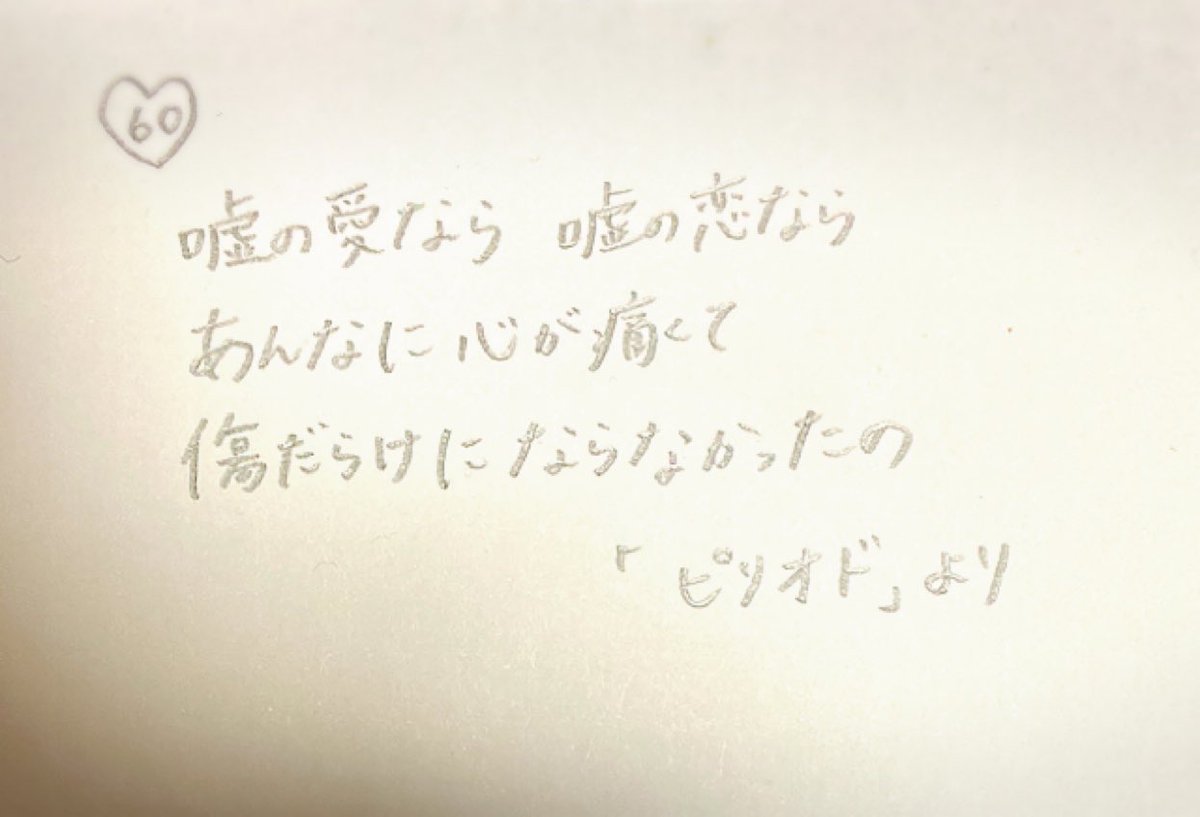 60
嘘の愛なら 嘘の恋なら
あんなに心が痛くて
傷だらけにならなかったの
「ピリオド」より